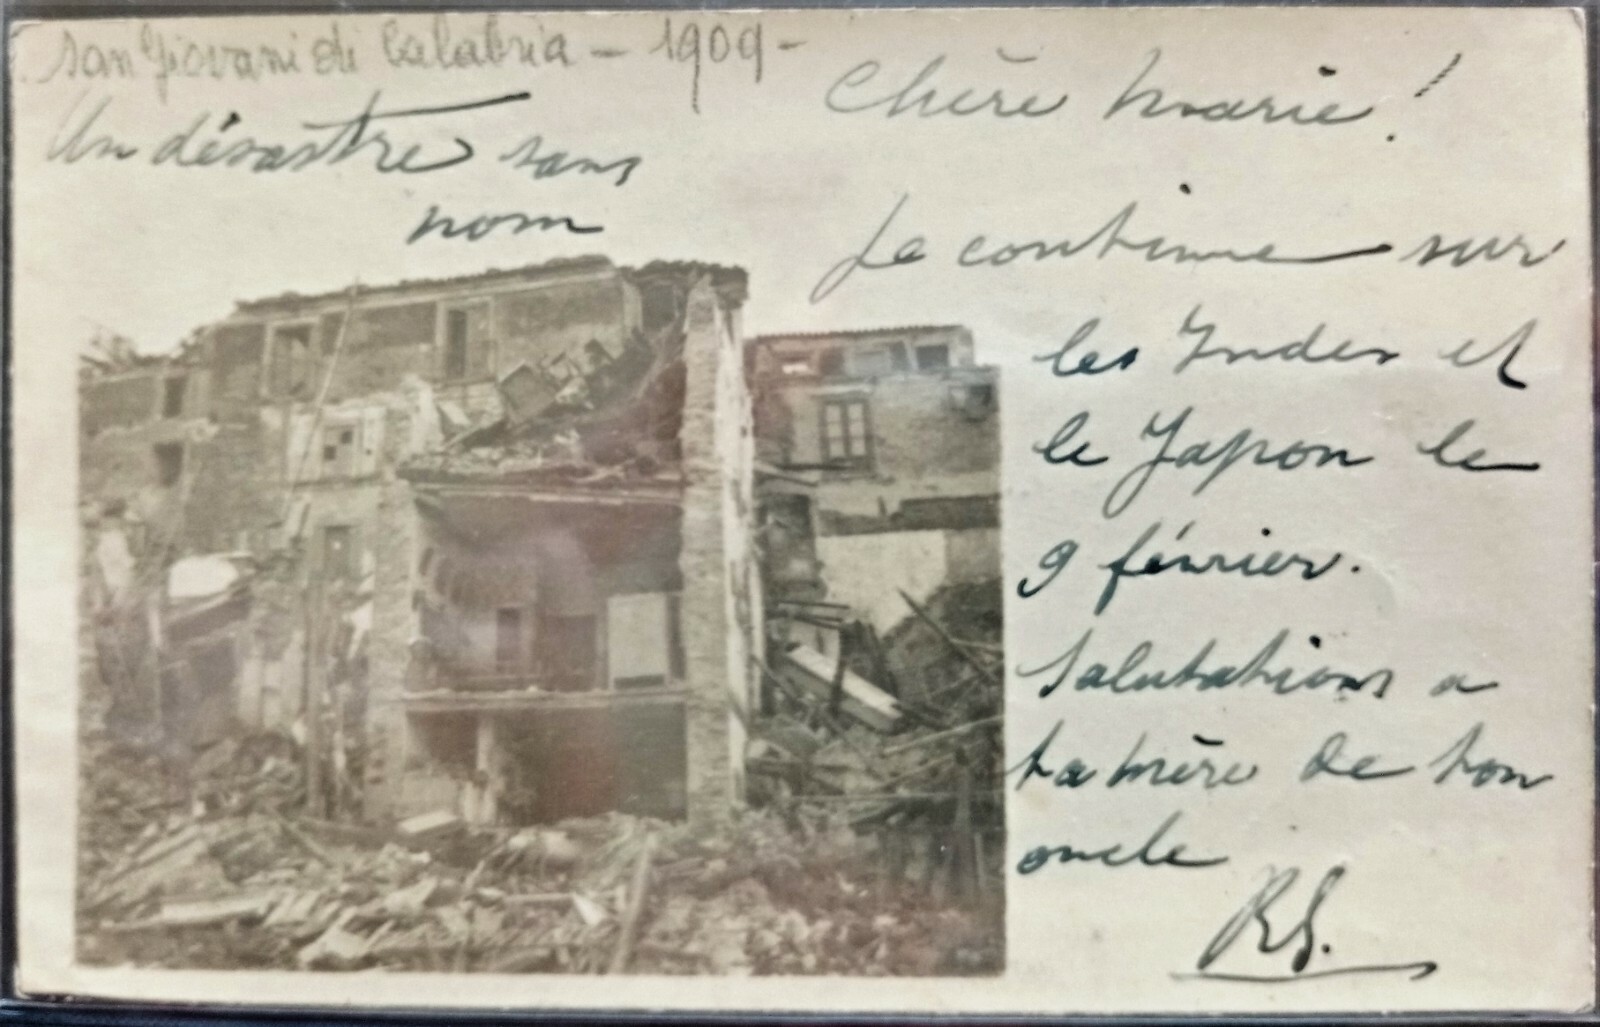 San Giovani di Calabria – 1909 –
Un désastre sans
nom
Chère Marie !
Je continue sur
les Indes et
le Japon le
9 février.
Salutations a
ta mère de ton
oncle
RS.